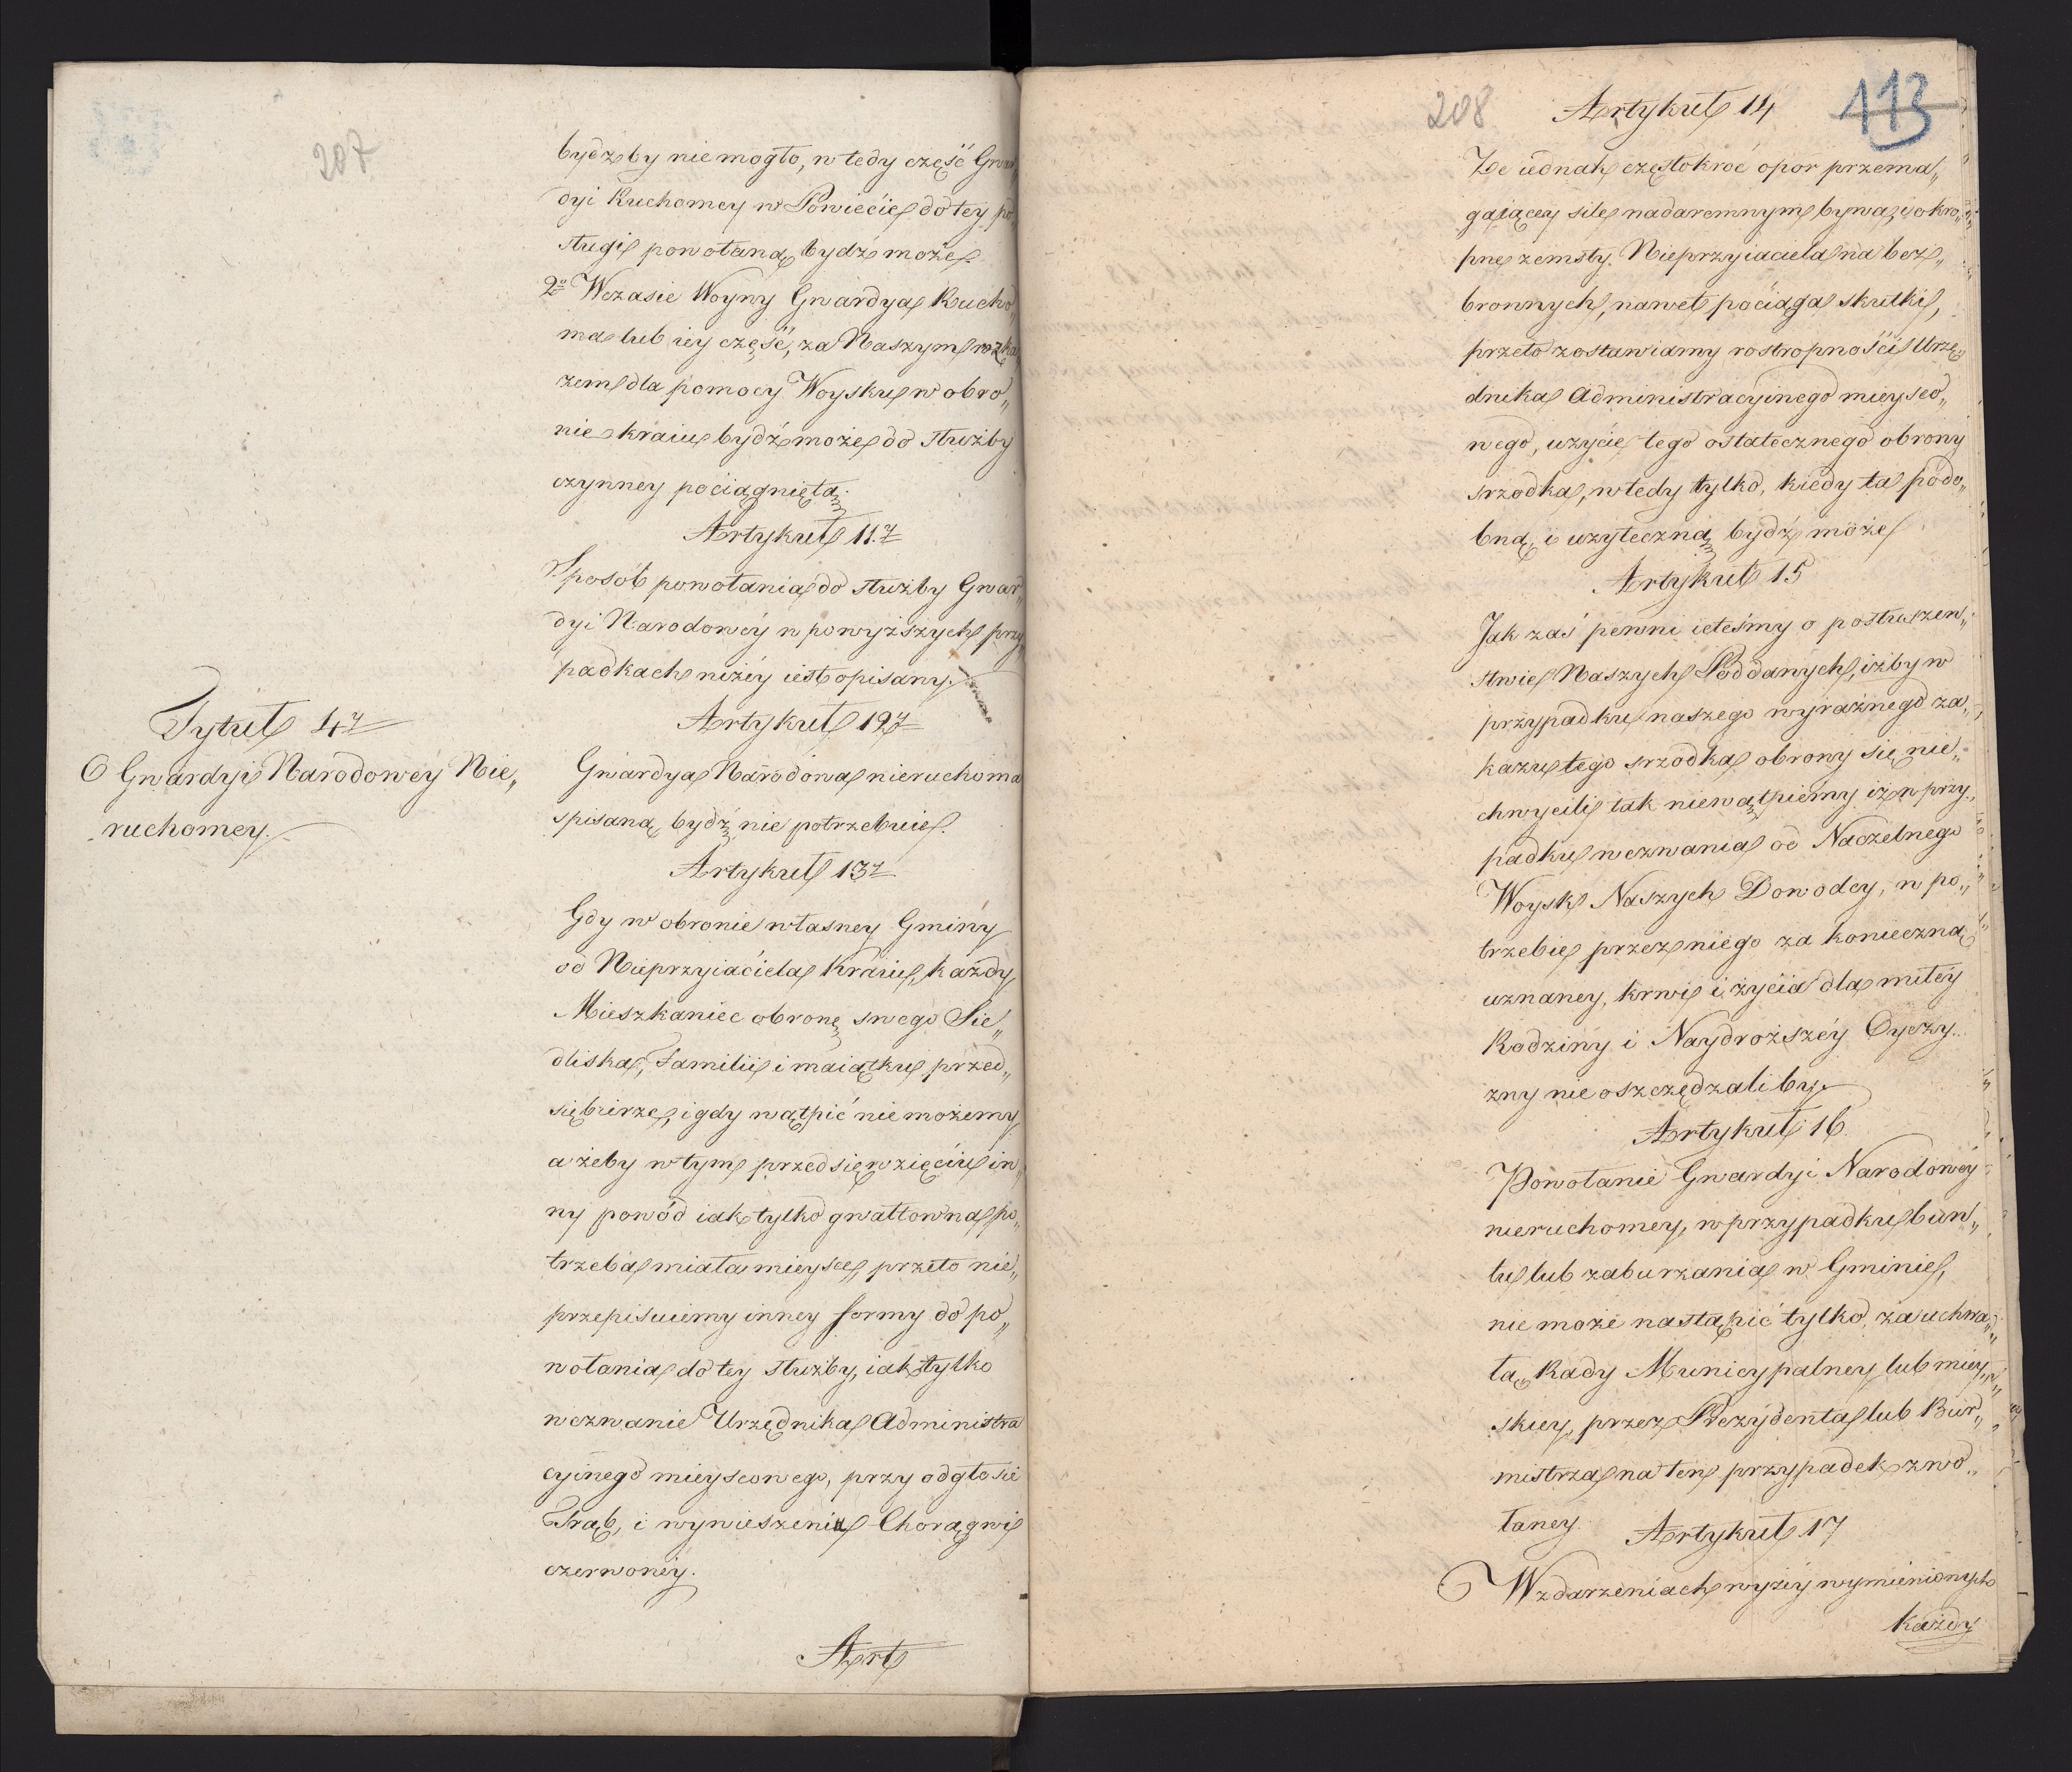 207
bydźby nie mogło, w tedy część Gwar„
dyi Ruchomey w Powiecie do tey po„
sługi powołaną bydź może.
2º W czasie Woyny Gwardya Rucho„
ma lub iey część, za Naszym rozka„
zem dla pomocy Woysku w obro„
nie kraiu bydź może do służby
czynney pociągniętą.
Artykuł 11.y
Sposób powołania do służby Gwar„
dyi Narodowéy w powyższych przy„
padkach niżéy iest opisany.
Tytuł 4y
O Gwardyi Narodowéy Nie„
ruchomey.
Artykuł 12y
Gwardya Narodowa nieruchoma
spisaną bydź nie potrzebuie.
Artykuł 13y
Gdy w obronie własney Gminy
od Nieprzyiaciela Kraiu, każdy
Mieszkaniec obronę swego Sie„
dliska, Familii i maiątku przed„
siębierze, i gdy wątpić nie możemy
ażeby w tym przedsięwzięciu in„
ny powód iak tylko gwałtowna po„
trzeba miała mieysce, przeto nie„
przepisuiemy inney formy do po„
wołania do tey służby, iak tylko
wezwanie Urzędnika Administra
cyinego mieyscowego, przy odgłosie
Trąb, i wywieszeniu Chorągwi
czerwonéy.
Art
208
113
Artykuł 14
Że iednak częstokroć opor przema„
gaiącey sile nadaremnym bywa, i okro„
pne zemsty Nieprzyiaciela na bez„
bronnych, nawet pociąga skutki,
przeto zostawiamy rostropności Urzę„
dnika Administracyinego mieysco„
wego, użycie tego ostatecznego obrony
srzodka, wtedy tylko, kiedy ta podo„
bną i użyteczną bydź może
Artykuł 15
Jak zaś pewni iesteśmy o posłuszen„
stwie Naszych Poddanych, iżby w
przypadku naszego wyraźnego za„
kazu tego srzodka obrony się nie„
chwycili tak niewątpiemy iż w przy„
padku wezwania od Naczelnego
Woysk Naszych Dowodcy, w po„
trzebie przez niego za konieczną
uznaney, krwi i życia dla miłéy
Rodziny i Naydroższéy Oyczy„
zny nie oszczędzaliby.
Artykuł 16
Powołanie Gwardyi Narodowéy
nieruchomey, w przypadku bun„
tu lub zaburzania w Gminie,
nie może nastąpić tylko za uchwa„
łą Rady Municypalney lub miey„
skiey, przez Prezydenta lub Bur„
mistrza na ten przypadek zwo„
łaney.
Artykuł 17
W zdarzeniach wyżéy wymienionych
każdy